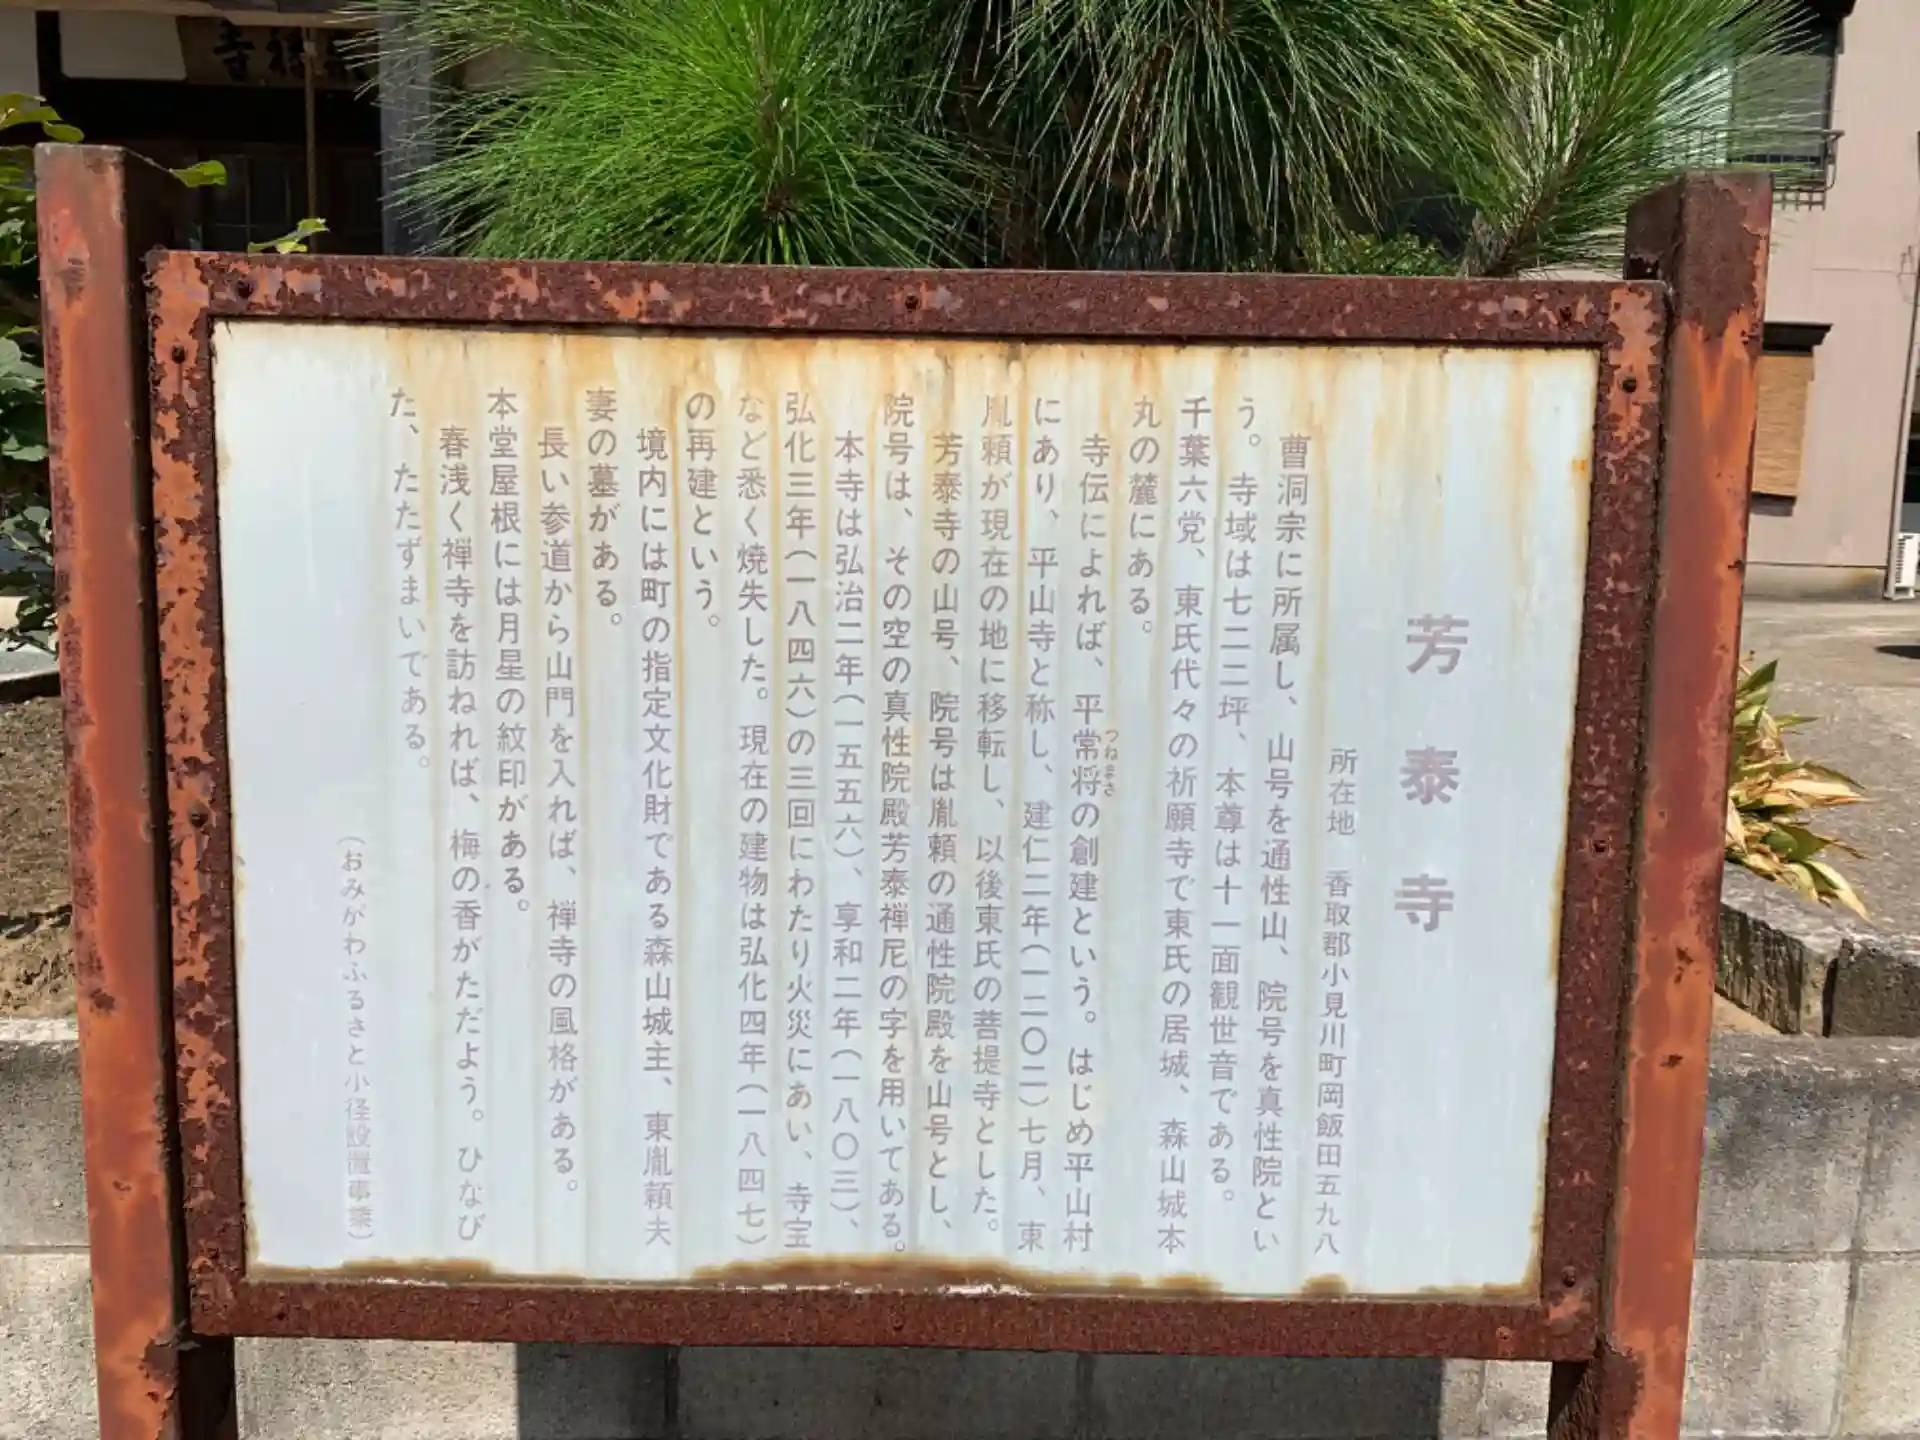 芳泰寺
所在地　香取郡小見川町岡飯田五九八
曹洞宗に所属し、山号を通性山、院号を真性院とい
う。寺域は七二二坪、本尊は十一面観世音である。
千葉六党、東氏代々の祈願寺で東氏の居城、森山城本
丸の麓にある。
寺伝によれば、平常将の創建という。はじめ平山村
つねまさ
にあり、平山寺と称し、建仁二年(一二〇二)七月、東
胤頼が現在の地に移転し、以後東氏の菩提寺とした。
芳泰寺の山号、院号は胤頼の通性院殿を山号とし、
院号は、その空の真性院殿芳泰禅尼の字を用いてある。
本寺は弘治二年(一五五六)、享和二年(一八〇三)、
弘化三年(一八四六)の三回にわたり火災にあい、寺宝
など悉く焼失した。現在の建物は弘化四年(一八四七)
の再建という。
境内には町の指定文化財である森山城主、東胤頼夫
妻の墓がある。
長い参道から山門を入れば、禅寺の風格がある。
本堂屋根には月星の紋印がある。
春浅く禅寺を訪ねれば、梅の香がただよう。ひなび
た、たたずまいである。
(おみがわふるさと小径設置事業)